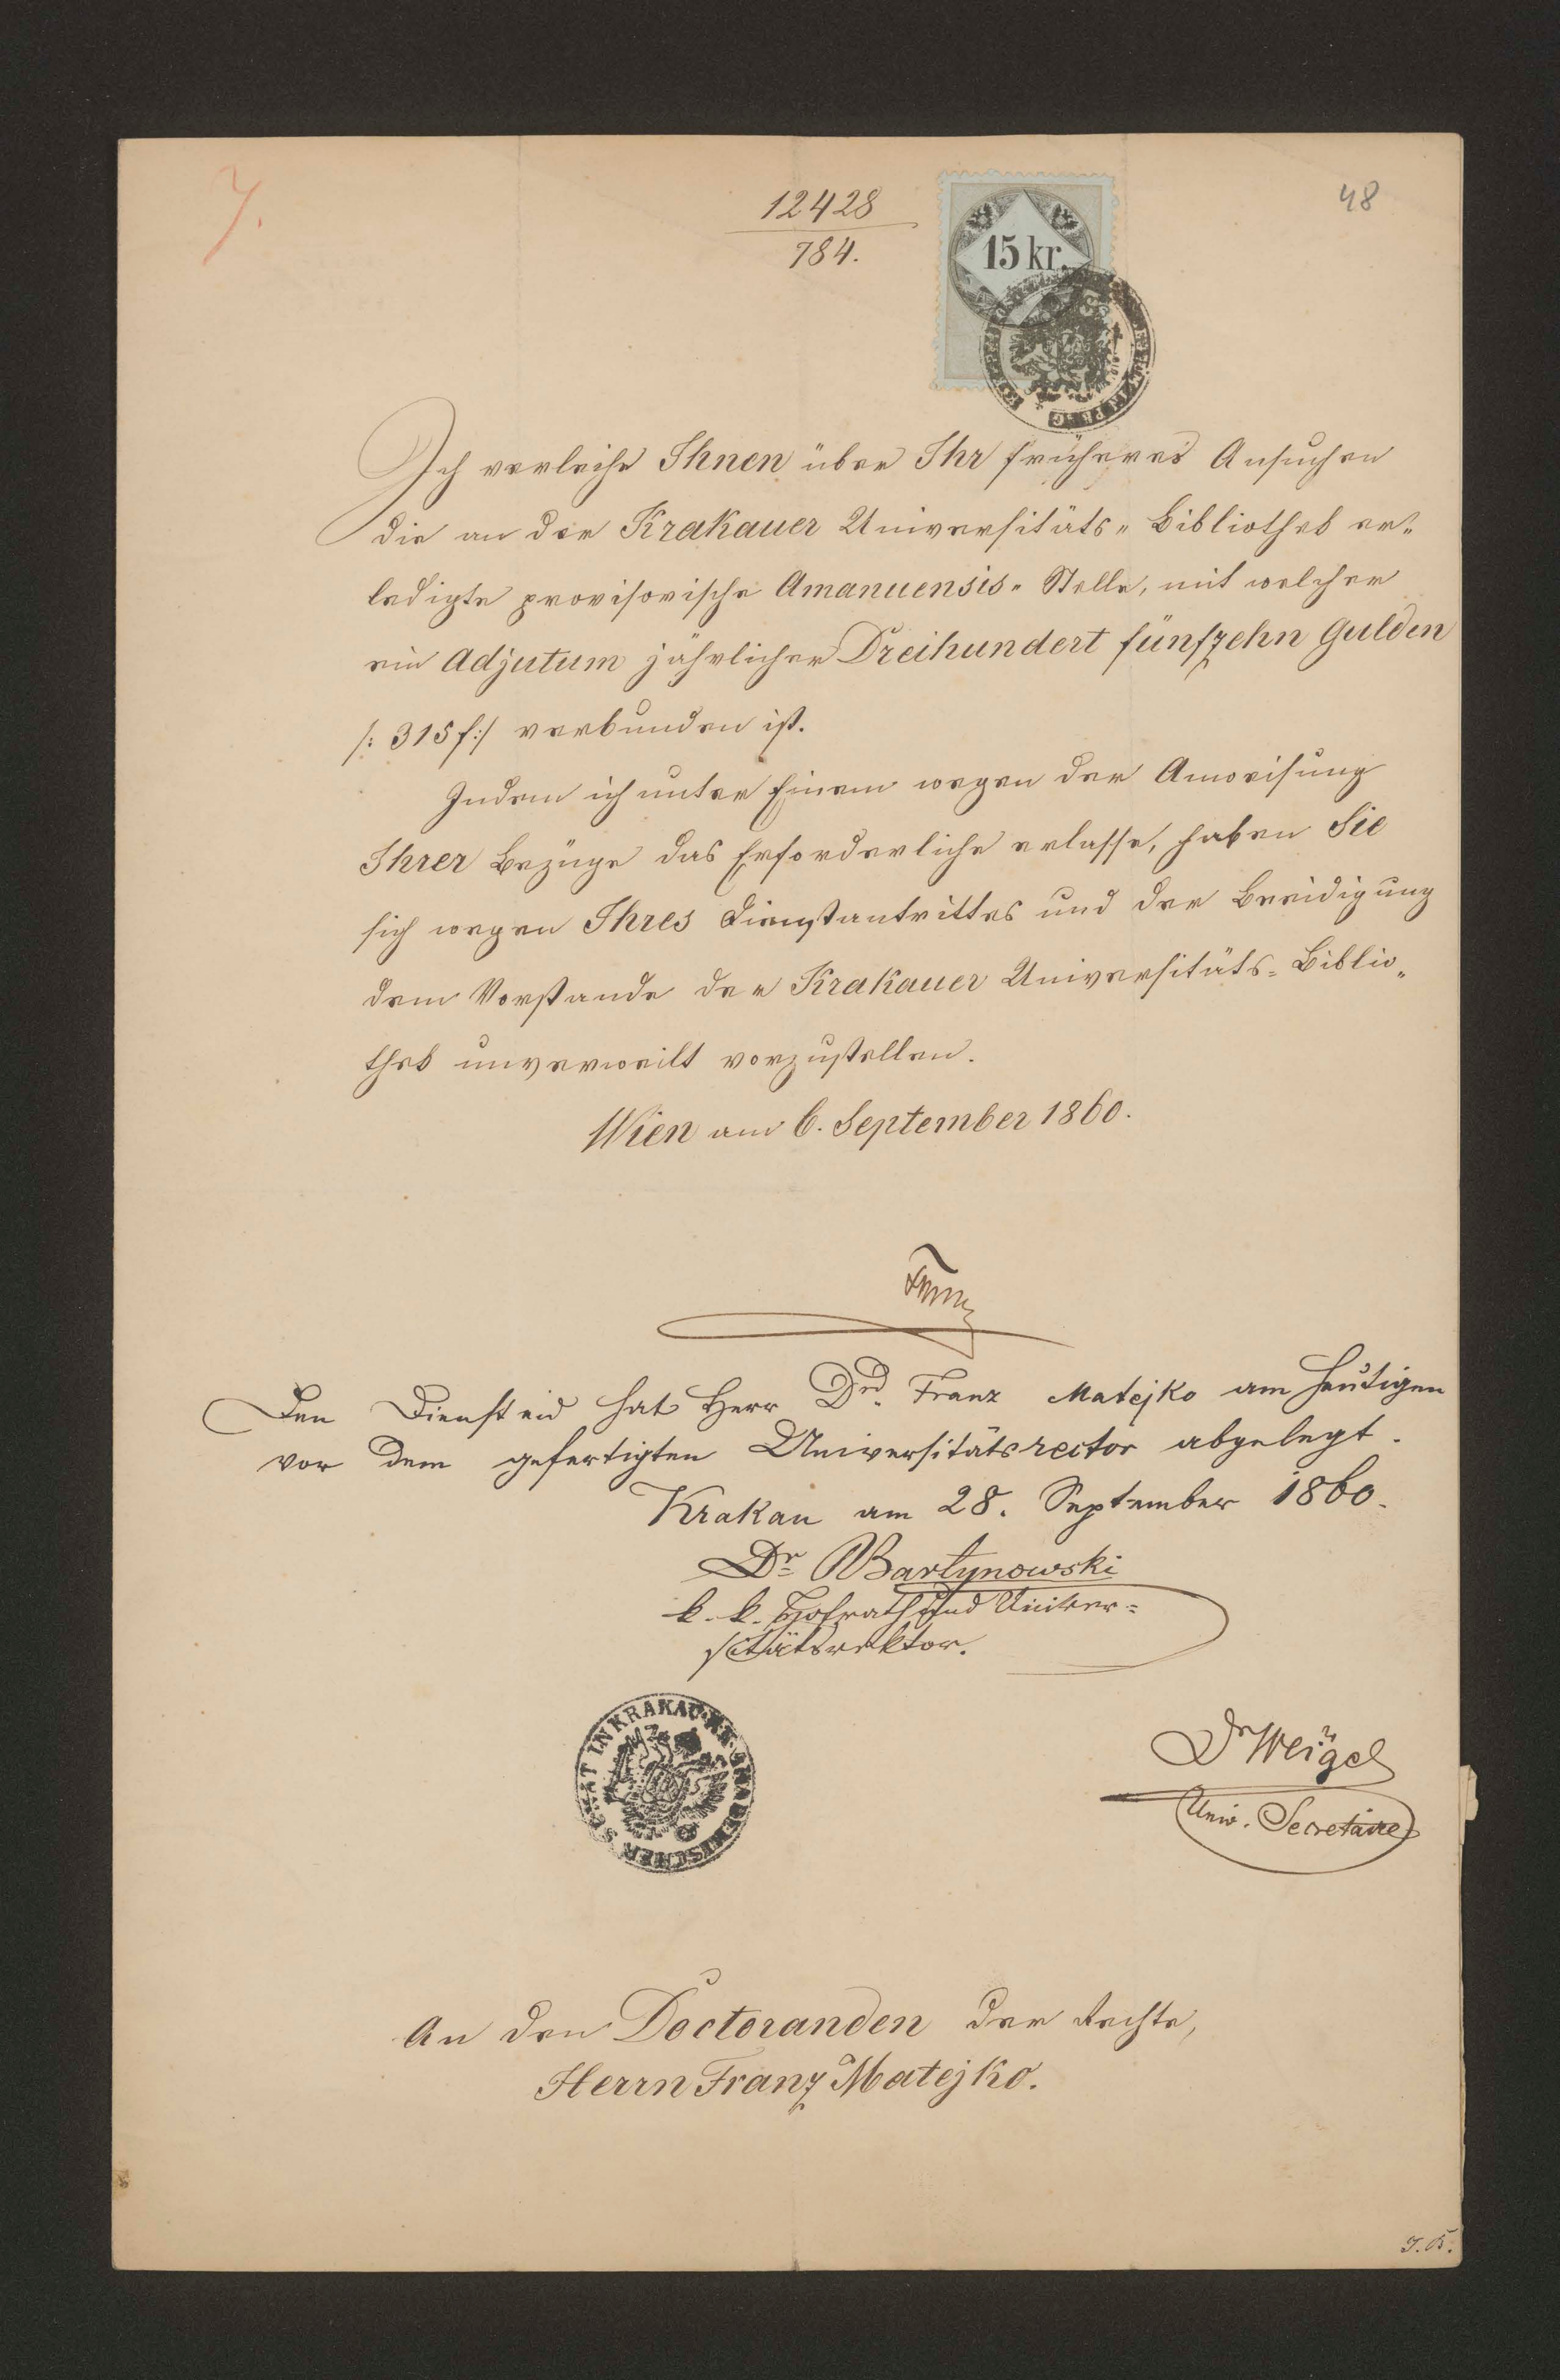 7.
12428
784.
48
15 kr.
Ich verleihe Ihnen über Ihr früheres Ansuchen
die an der Krakauer Universitäts„ Bibliothek er„
ledigte provisorische Amanuensis„ Stelle, mit welcher
ein Adjutum jährlicher Dreihundert fünfzehn Gulden
/: 315 f :/ verbunden ist.
Indem ich unter Einem wegen der Anweisung
Ihrer Bezüge das Erforderliche erlasse, haben Sie
sich wegen Ihres Dienstantrittes und der Beeidigung
dem Vorstande der Krakauer Universitäts= Biblio„
thek unverweilt vorzustellen.
Wien am 6. September 1860.
Den Diensteid hat Herr Drd. Franz Matejko am heutigen
vor dem gefertigten Universitätsrector abgelegt.
Krakau am 28. September 1860.
Dr Bartynowski
k. k. Hofrath und Univer=
sitätsrektor.
K.K. AKADEMISCHER SENAT IN KRAKAU
Dr Weigel
Univ. Secretaire
An den Doctoranden der Rechte,
Herrn Franz Matejko.